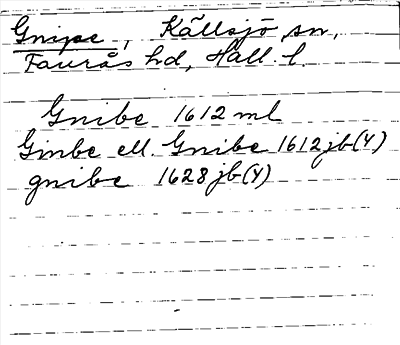 Gnipe, Källsjö sn,
Faurås hd, Hall. l.
Gnibe 1612 ml
Ginbe ell. Gnibe 1612 jb (4)
gnibe 1628 jb (4)